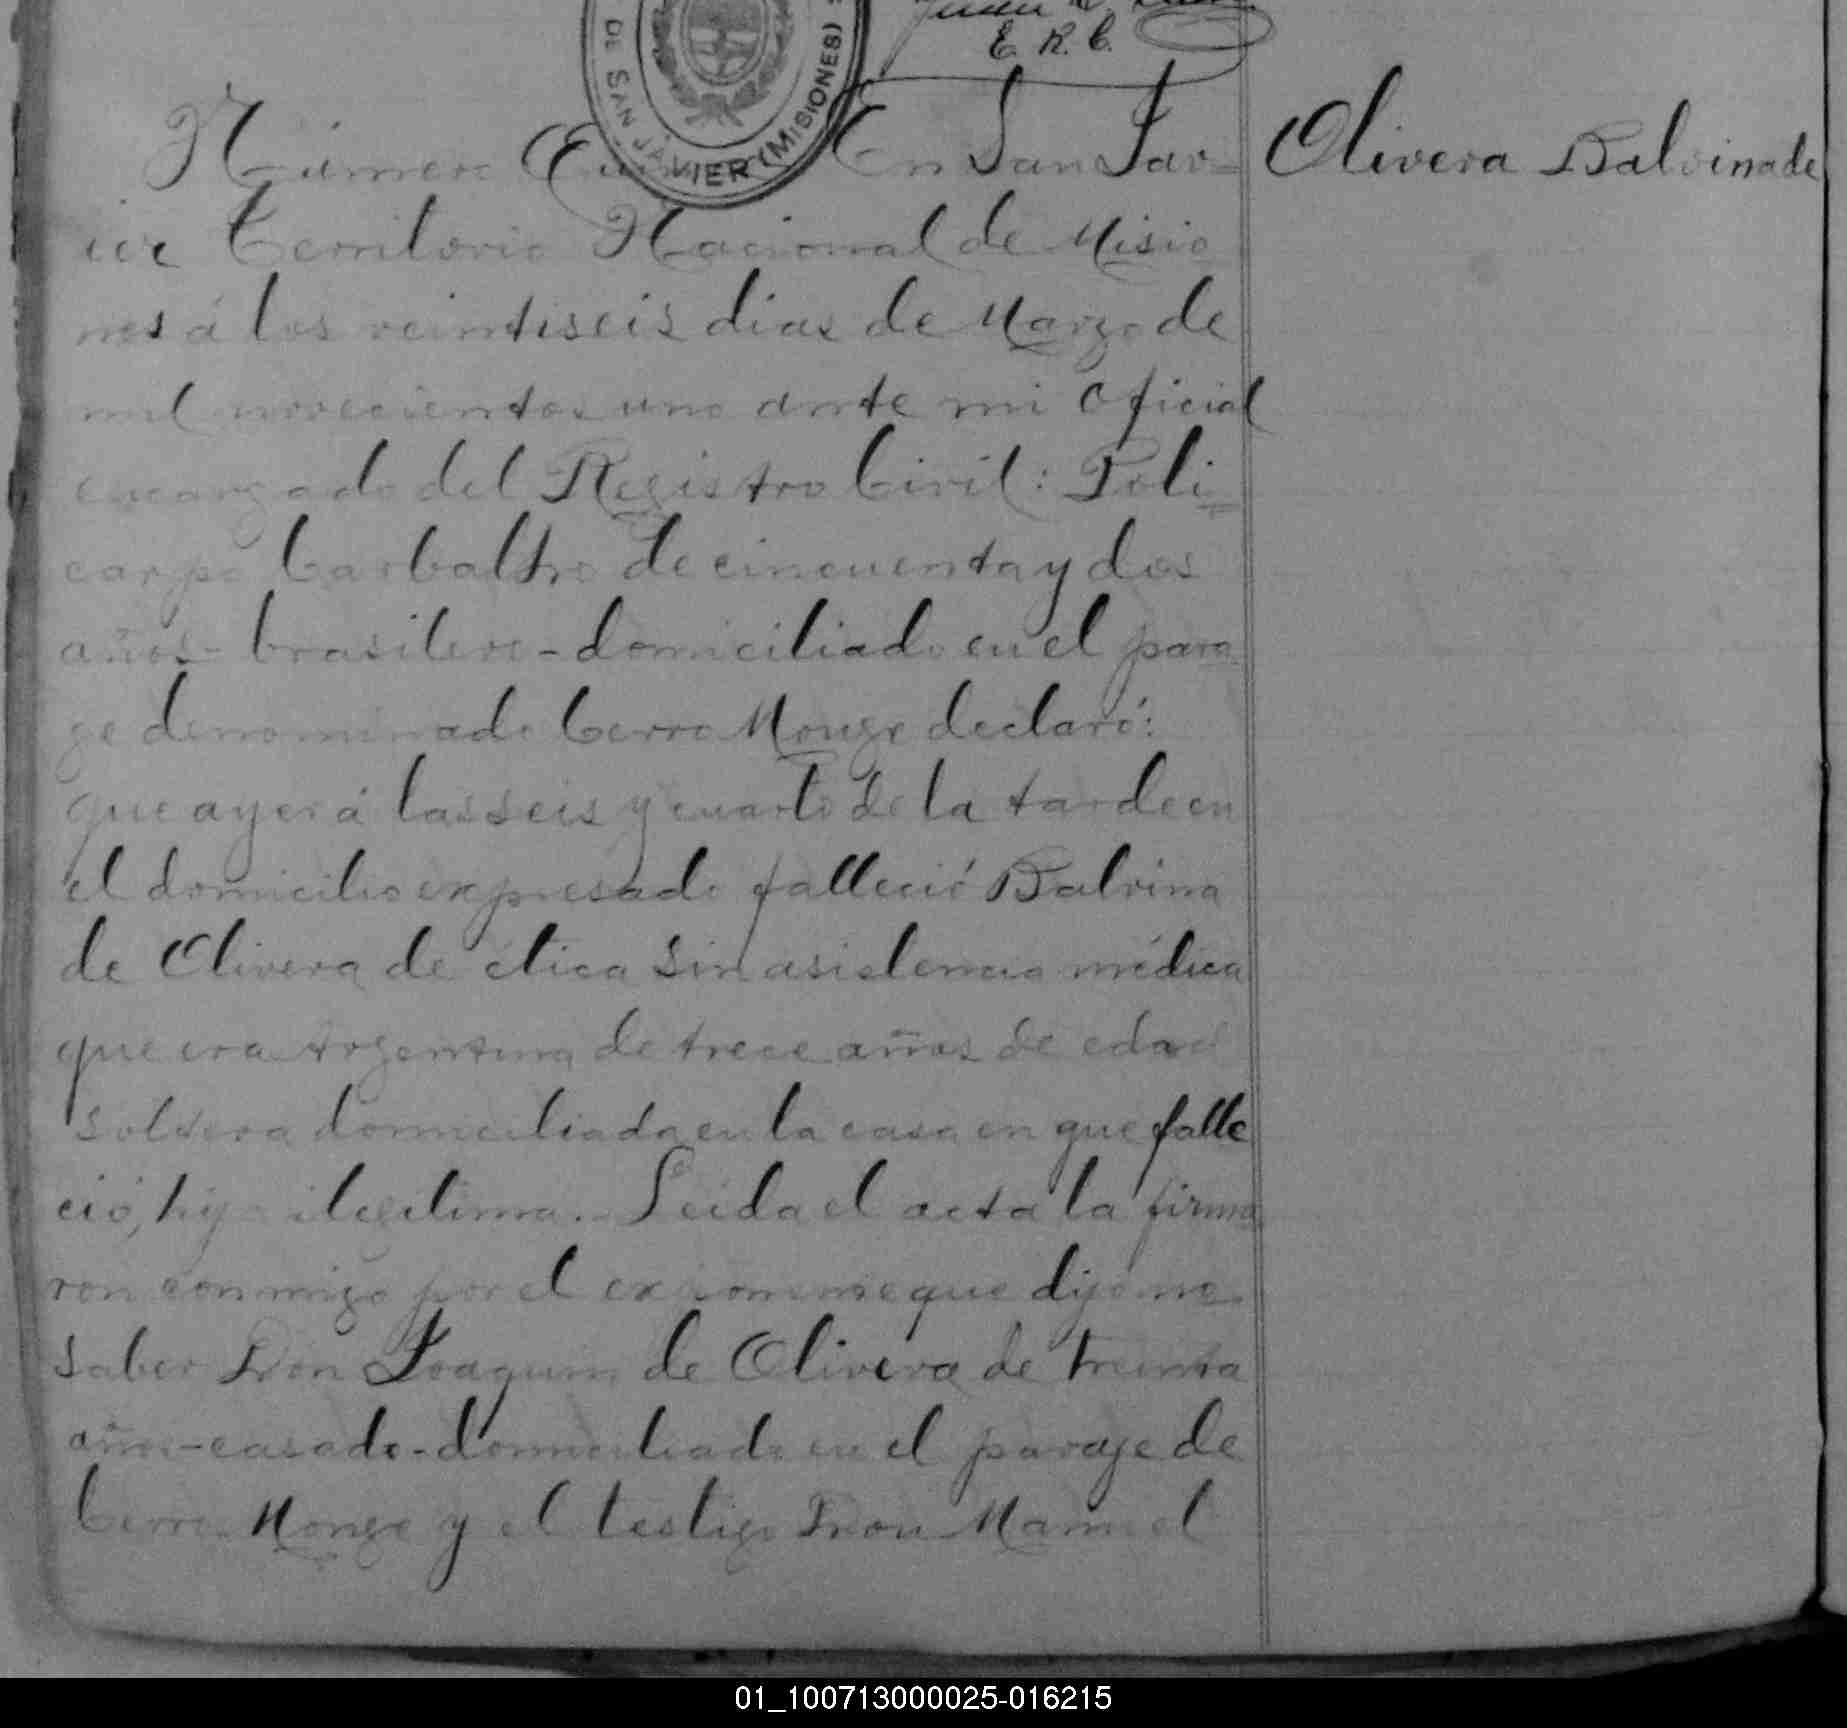 E. R. C.
DE SAN JAVIER (MISIONES)
Número En San Jav=
ier Territorio Nacional de Misio
nes á los veintiseis dias de Marzo de
mil novecientos uno ante mi Oficial
encargado del Registro Civil: Poli=
carpo Carbalho de cincuenta y dos
años- brasilero-domiciliado en el para
ge denominado Cerro Monge declaró:
que ayer á las seis y cuarto de la tarde en
el domicilio expresado falleció Balvina
de Olivera de ética sin asistencia médica
que era Argentina de trece años de edad
soltera domiciliada en la casa en que falle
ció, hija ilegitima. Leida el acta la firma
ron conmigo por el exponente que dijo no
saber Don Joaquim de Olivera de treinta
años-casado-domiciliado en el paraje de
Cerro Monge y el testigo Don Manuel
Olivera Balvina de
01_100713000025-016215